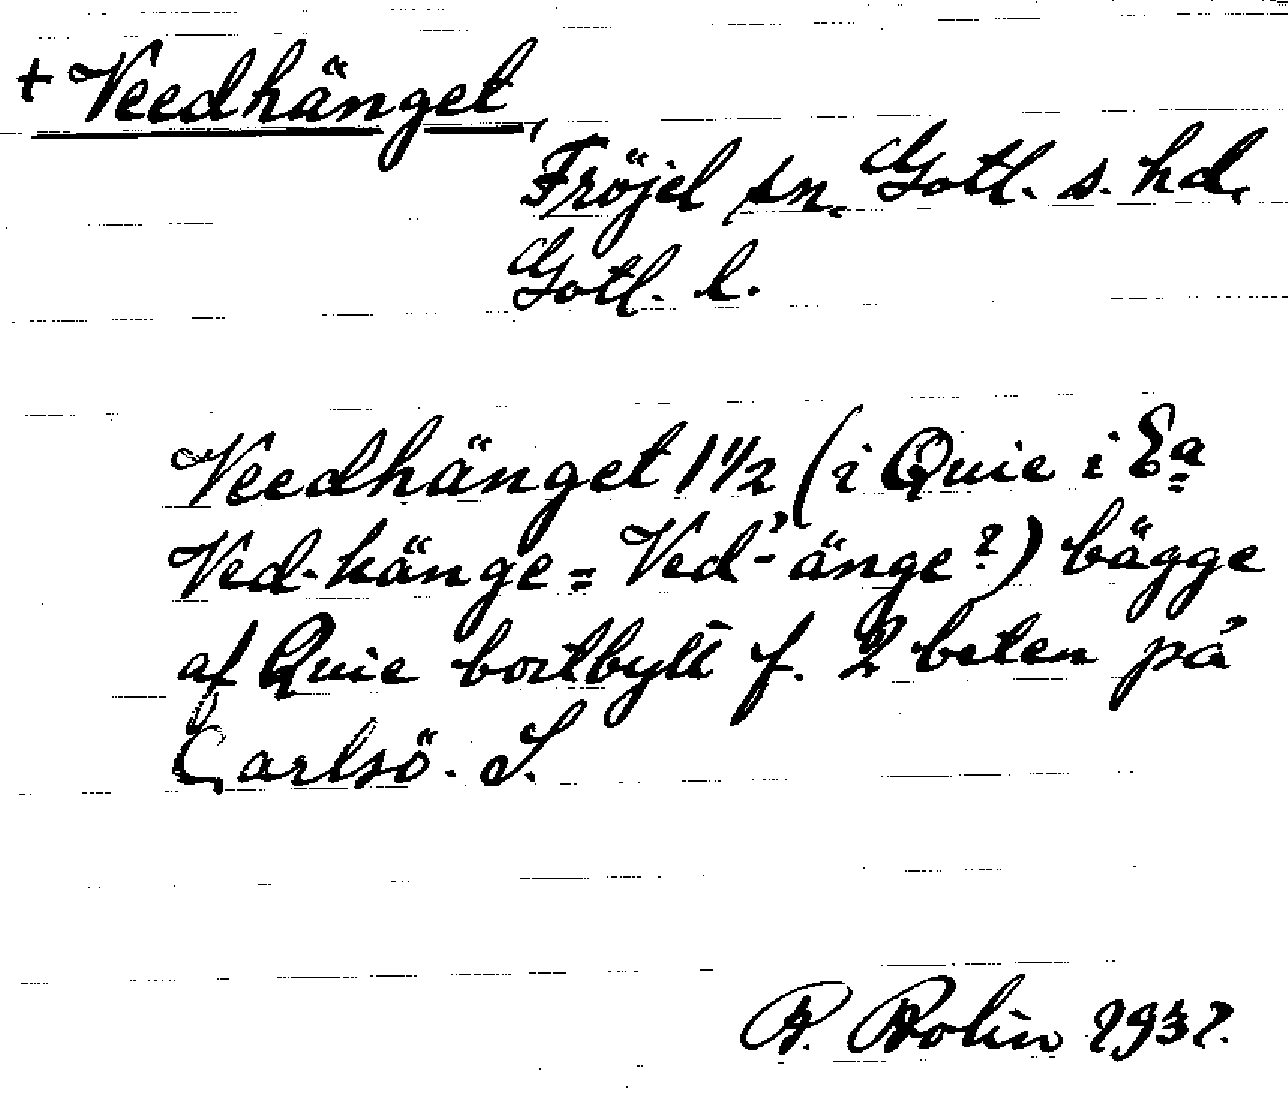 + Veedhänget,
Fröjel sn. Gotl. s. hd.
Gotl. l.
Veedhänget 1 1/2 (i Quie i Ea
Ved-hänge = Ved-'änge?) bägge
af Quie bortbytt f. 2 beten på
Carlsö. S.
P. Bolin 1937.